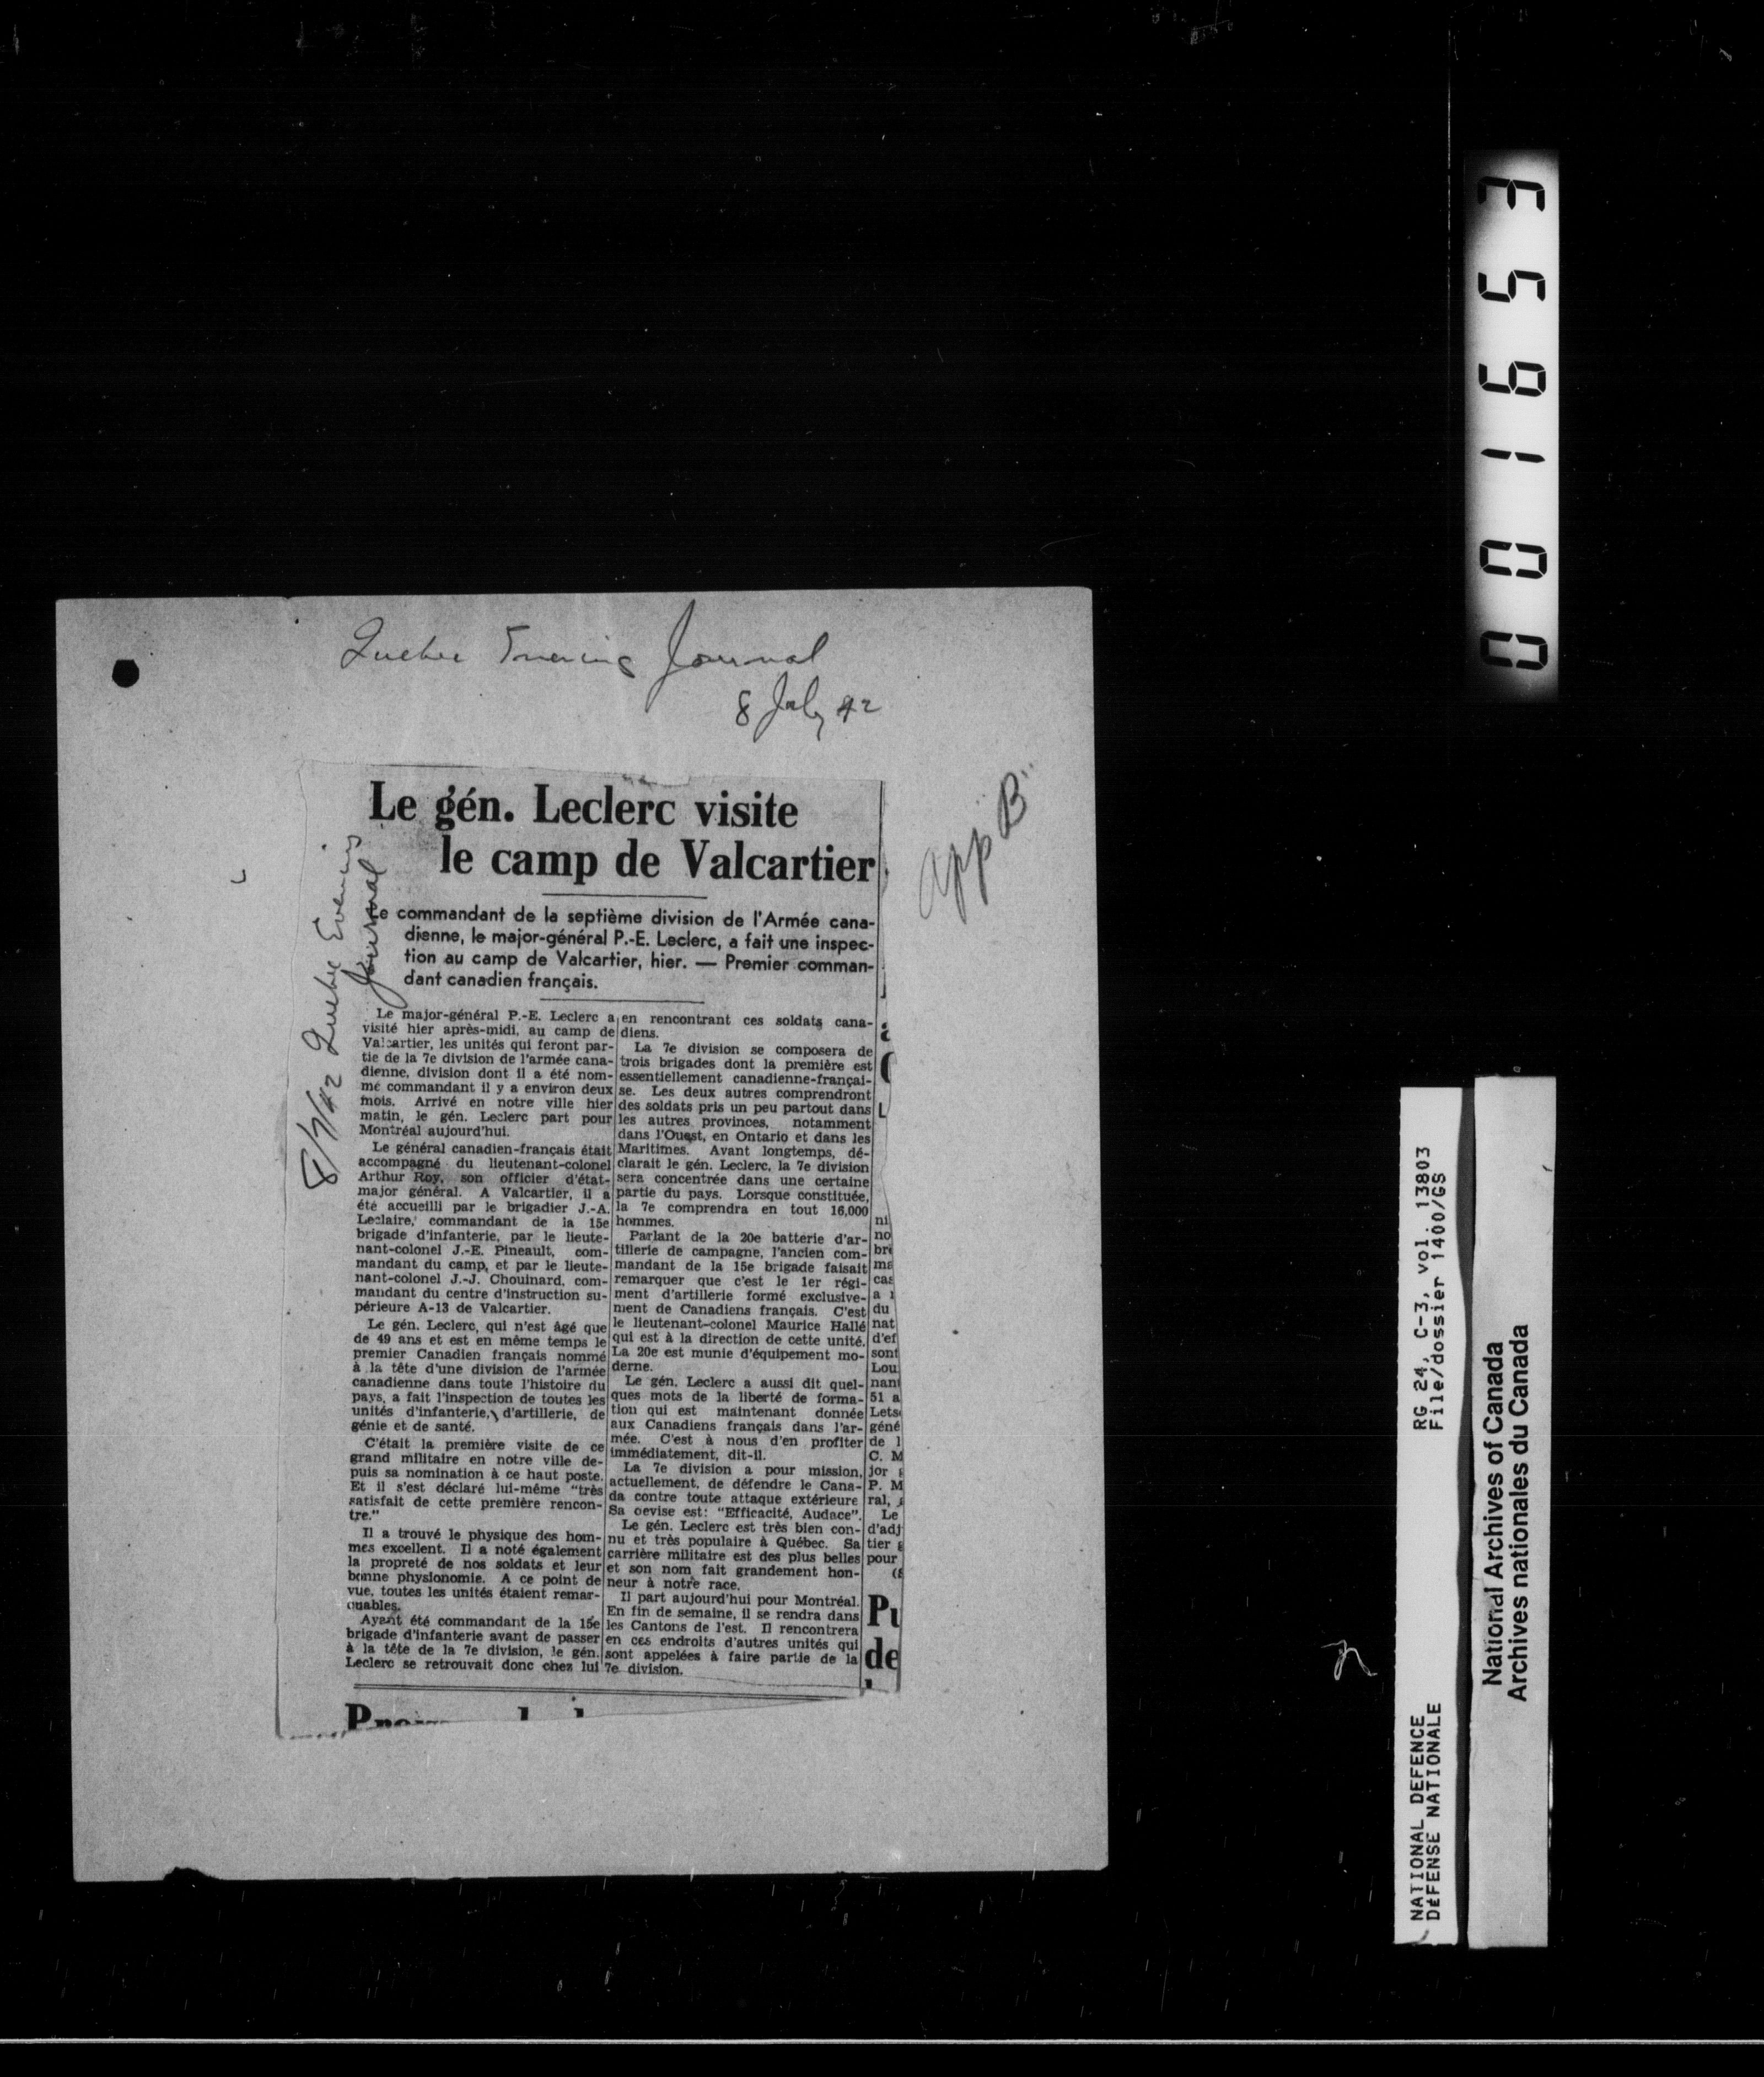 Quebec Evening Journal
8 July 42
App "B"
8/7/42 Quebec Evening
Journal
Le gén. Leclerc visite
le camp de Valcartier
Le commandant de la septième division de l'Armée cana-
dienne, le major-général P.-E. Leclerc, a fait une inspec-
tion au camp de Valcartier, hier. — Premier comman-
dant canadien français.
Le major-général P.-E. Leclerc a
visité hier après-midi, au camp de
Valcartier, les unités qui feront par-
tie de la 7e division de l'armée cana-
dienne, division dont il a été nom-
mé commandant il y a environ deux
mois. Arrivé en notre ville hier
matin, le gén. Leclerc part pour
Montréal aujourd'hui.
Le général canadien-français était
accompagné du lieutenant-colonel
Arthur Roy, son officier d'état-
major général. A Valcartier, il a
été accueilli par le brigadier J.-A.
Leclaire, commandant de la 15e
brigade d'infanterie, par le lieute-
nant-colonel J.-E. Pineault, com-
mandant du camp, et par le lieute-
nant-colonel J.-J. Chouinard, com-
mandant du centre d'instruction su-
périeure A-13 de Valcartier.
Le gén. Leclerc, qui n'est âgé que
de 49 ans et est en même temps le
premier Canadien français nommé
à la tête d'une division de l'armée
canadienne dans toute l'histoire du
pays, a fait l'inspection de toutes les
unités d'infanterie, d'artillerie, de
génie et de santé.
C'était la première visite de ce
grand militaire en notre ville de-
puis sa nomination à ce haut poste.
Et il s'est déclaré lui-même "très
satisfait de cette première rencon-
tre."
Il a trouvé le physique des hom-
mes excellent. Il a noté également
la propreté de nos soldats et leur
bonne physionomie. A ce point de
vue, toutes les unités étaient remar-
quables.
Ayant été commandant de la 15e
brigade d'infanterie avant de passer
à la tête de la 7e division, le gén.
Leclerc se retrouvait donc chez lui
en rencontrant ces soldats cana-
diens.
La 7e division se composera de
trois brigades dont la première est
essentiellement canadienne-françai-
se. Les deux autres comprendront
des soldats pris un peu partout dans
les autres provinces, notamment
dans l'Ouest, en Ontario et dans les
Maritimes. Avant longtemps, dé-
clarait le gén. Leclerc, la 7e division
sera concentrée dans une certaine
partie du pays. Lorsque constituée,
la 7e comprendra en tout 16,000
hommes.
Parlant de la 20e batterie d'ar-
tillerie de campagne, l'ancien com-
mandant de la 15e brigade faisait
remarquer que c'est le 1er régi-
ment d'artillerie formé exclusive-
ment de Canadiens français. C'est
le lieutenant-colonel Maurice Hallé
qui est à la direction de cette unité.
La 20e est munie d'équipement mo-
derne.
Le gén. Leclerc a aussi dit quel-
ques mots de la liberté de forma-
tion qui est maintenant donnée
aux Canadiens français dans l'ar-
mée. C'est à nous d'en profiter
immédiatement, dit-il.
La 7e division a pour mission,
actuellement, de défendre le Cana-
da contre toute attaque extérieure
Sa devise est: "Efficacité, Audace".
Le gén. Leclerc est très bien con-
nu et très populaire à Québec. Sa
carrière militaire est des plus belles
et son nom fait grandement hon-
neur à notre race.
Il part aujourd'hui pour Montréal.
En fin de semaine, il se rendra dans
les Cantons de l'est. Il rencontrera
en ces endroits d'autres unités qui
sont appelées à faire partie de la
7e division.
L
ni
no
bre
ma
cas
a
du
nat
d'ef
sont
Lou
nant
51 a
Lets
géné
de l
C. M
jor
P. M
ral,
Le
d'adj
tier
pour
Pu
de
001653
RG 24, C-3, vol. 13803
File/dossier 1400/GS
NATIONAL DEFENCE
DéFENSE NATIONALE
National Archives of Canada
Archives nationales du Canada